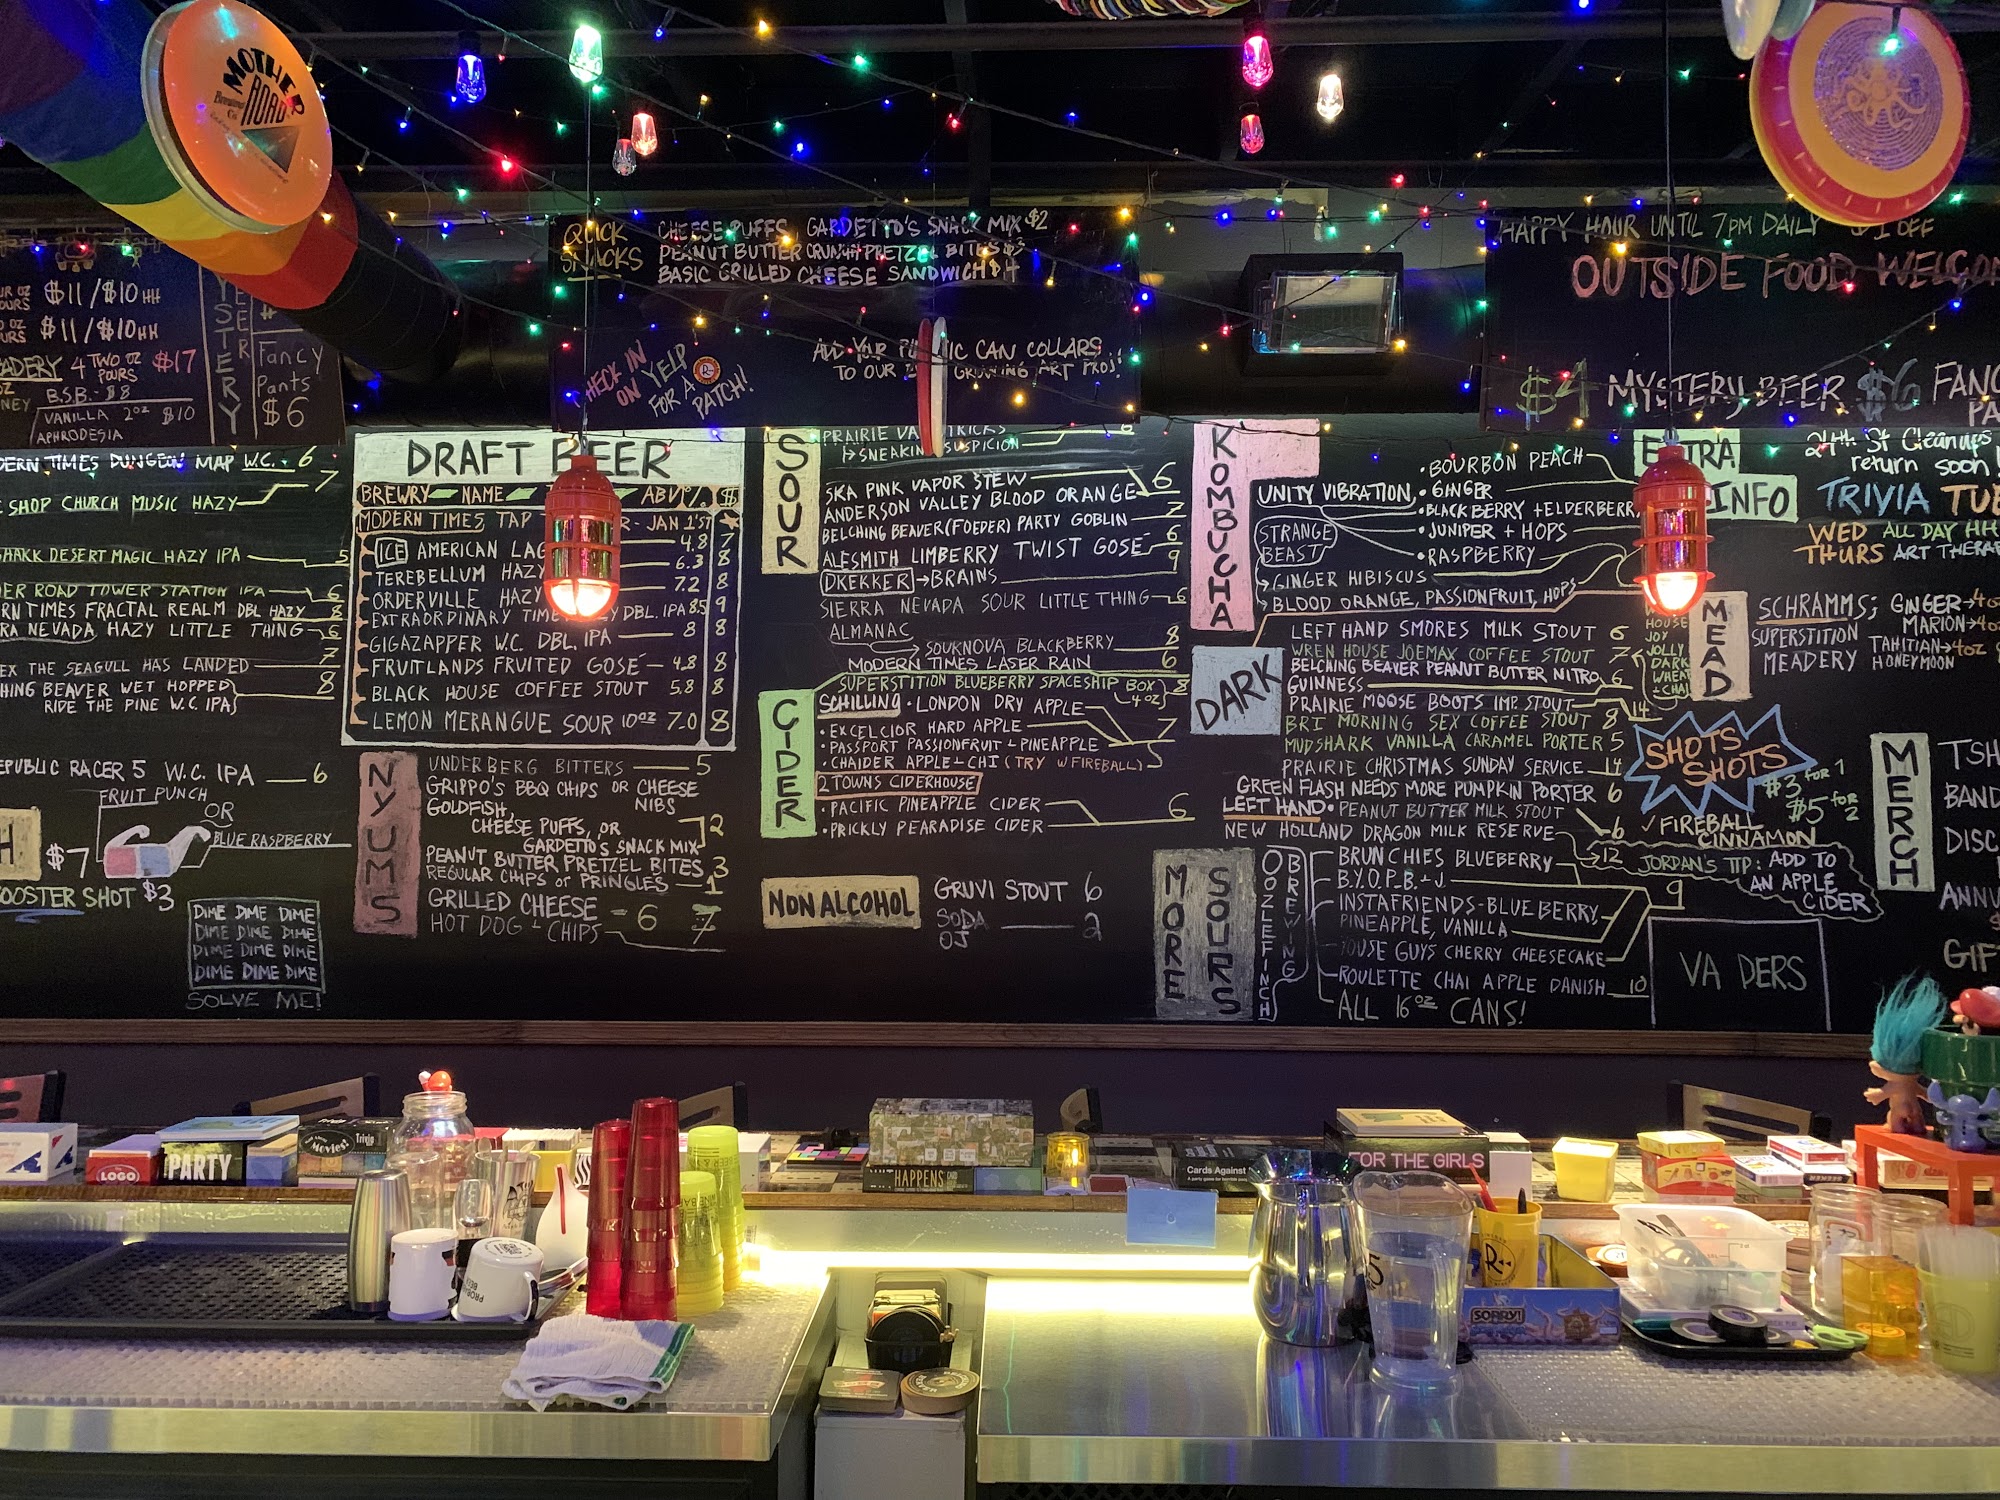 MOTHER
ROAD
Brewing
Co
$11/$10 HH
$11/$10 HH
4 TWO OZ $17
POURS
B.S.B. - $8
VANILLA 2oz $10
APHRODESIA
Fancy
Pants
$6
QUICK
SNACKS
CHEESE PUFFS, GARDETTO'S SNACK MIX $2
PEANUT BUTTER CRUNCH PRETZEL BITES $3
BASIC GRILLED CHEESE SANDWICH $4
CHECK IN
ON YELP
FOR A
PATCH!
ADD YOUR CAN COLLARS
TO OUR GROWING ART PROJ!
HAPPY HOUR UNTIL 7PM DAILY $1 OFF
OUTSIDE FOOD
$4 MYSTERY BEER $6
TIMES DUNGEON MAP W.C. - 6
SHOP CHURCH MUSIC HAZY 7
DESERT MAGIC HAZY IPA 5
ROAD TOWER STATION IPA 6
TIMES FRACTAL REALM DBL HAZY 8
NEVADA HAZY LITTLE THING 6
THE SEAGULL HAS LANDED 7
BEAVER WET HOPPED 8
RIDE THE PINE W.C. IPA
RACER 5 W.C. IPA 6
FRUIT PUNCH
OR
BLUE RASPBERRY
$7
SHOT $3
DIME DIME DIME
DIME DIME DIME
DIME DIME DIME
DIME DIME DIME
SOLVE ME!
DRAFT BEER
BREWRY NAME ABV% $
MODERN TIMES TAP R - JAN 1ST
ICE AMERICAN LAG 4.8 7
TEREBELLUM HAZY 6.3 8
ORDERVILLE HAZY 7.2 8
EXTRAORDINARY TIME DBL. IPA 8.5 9
GIGAZAPPER W.C. DBL. IPA 8 8
FRUITLANDS FRUITED GOSE 4.8 8
BLACK HOUSE COFFEE STOUT 5.8 8
LEMON MERANGUE SOUR 10oz 7.0 8
NYUMS
UNDERBERG BITTERS 5
GRIPPO'S BBQ CHIPS OR CHEESE
NIBS
GOLDFISH,
CHEESE PUFFS, OR 2
GARDETTO'S SNACK MIX
PEANUT BUTTER PRETZEL BITES 3
REGULAR CHIPS or PRINGLES 1
GRILLED CHEESE - 6
HOT DOG + CHIPS 7
SOUR
PRAIRIE TRICKS 6
SNEAKIN SUSPICION
SKA PINK VAPOR STEW 6
ANDERSON VALLEY BLOOD ORANGE
BELCHING BEAVER (FOEDER) PARTY GOBLIN 7
ALESMITH LIMBERRY TWIST GOSE 6
DKEKKER BRAINS 9
SIERRA NEVADA SOUR LITTLE THING 6
ALMANAC
SOUKNOVA BLACKBERRY 8
MODERN TIMES LASER RAIN 6
CIDER
SUPERSTITION BLUEBERRY SPACESHIP BOX 8
4 oz
SCHILLING • LONDON DRY APPLE
• EXCELCIOR HARD APPLE 7
• PASSPORT PASSIONFRUIT + PINEAPPLE
• CHAIDER APPLE-CHI (TRY W FIREBALL) 5
2 TOWNS CIDERHOUSE
• PACIFIC PINEAPPLE CIDER 6
• PRICKLY PEARADISE CIDER
NON ALCOHOL
GRUVI STOUT 6
SODA 2
OJ
KOMBUCHA
UNITY VIBRATION
• BOURBON PEACH
• GINGER
• BLACKBERRY + ELDERBERRY
• JUNIPER + HOPS
• RASPBERRY
STRANGE
BEAST
GINGER HIBISCUS
BLOOD ORANGE, PASSIONFRUIT, HOPS
DARK
LEFT HAND SMORES MILK STOUT 6
WREN HOUSE JOEMAX COFFEE STOUT 7
BELCHING BEAVER PEANUT BUTTER NITRO
GUINNESS 6
PRAIRIE MOOSE BOOTS IMP. STOUT 14
BRI MORNING SEX COFFEE STOUT 8
MUDSHARK VANILLA CARAMEL PORTER 5
PRAIRIE CHRISTMAS SUNDAY SERVICE 14
GREEN FLASH NEEDS MORE PUMPKIN PORTER 6
LEFT HAND • PEANUT BUTTER MILK STOUT 6
NEW HOLLAND DRAGON MILK RESERVE 12
HOUSE
JOY
JOLLY
DARK
MORE SOURS
OOZLEFINCH
BREWING
BRUNCHIES BLUEBERRY
B.Y.O.P.B. + J 9
INSTAFRIENDS - BLUEBERRY,
PINEAPPLE, VANILLA
HOUSE GUYS CHERRY CHEESECAKE
ROULETTE CHAI APPLE DANISH 10
ALL 16oz CANS!
EXTRA
INFO
24th St Cleanups
return soon
TRIVIA
WED ALL DAY HH
THURS ART
MEAD
SCHRAMMS; GINGER
MARION
SUPERSTITION
MEADERY
TAHITIAN
HONEYMOON
SHOTS
SHOTS
$3 for 1
$5 for 2
✓ FIREBALL
CINNAMON
JORDAN'S TIP: ADD TO
AN APPLE
CIDER
VA DERS
MERCH
PARTY
LOGO
Movies!
Trivia
HAPPENS
Cards Against
FOR THE GIRLS
SORRY!